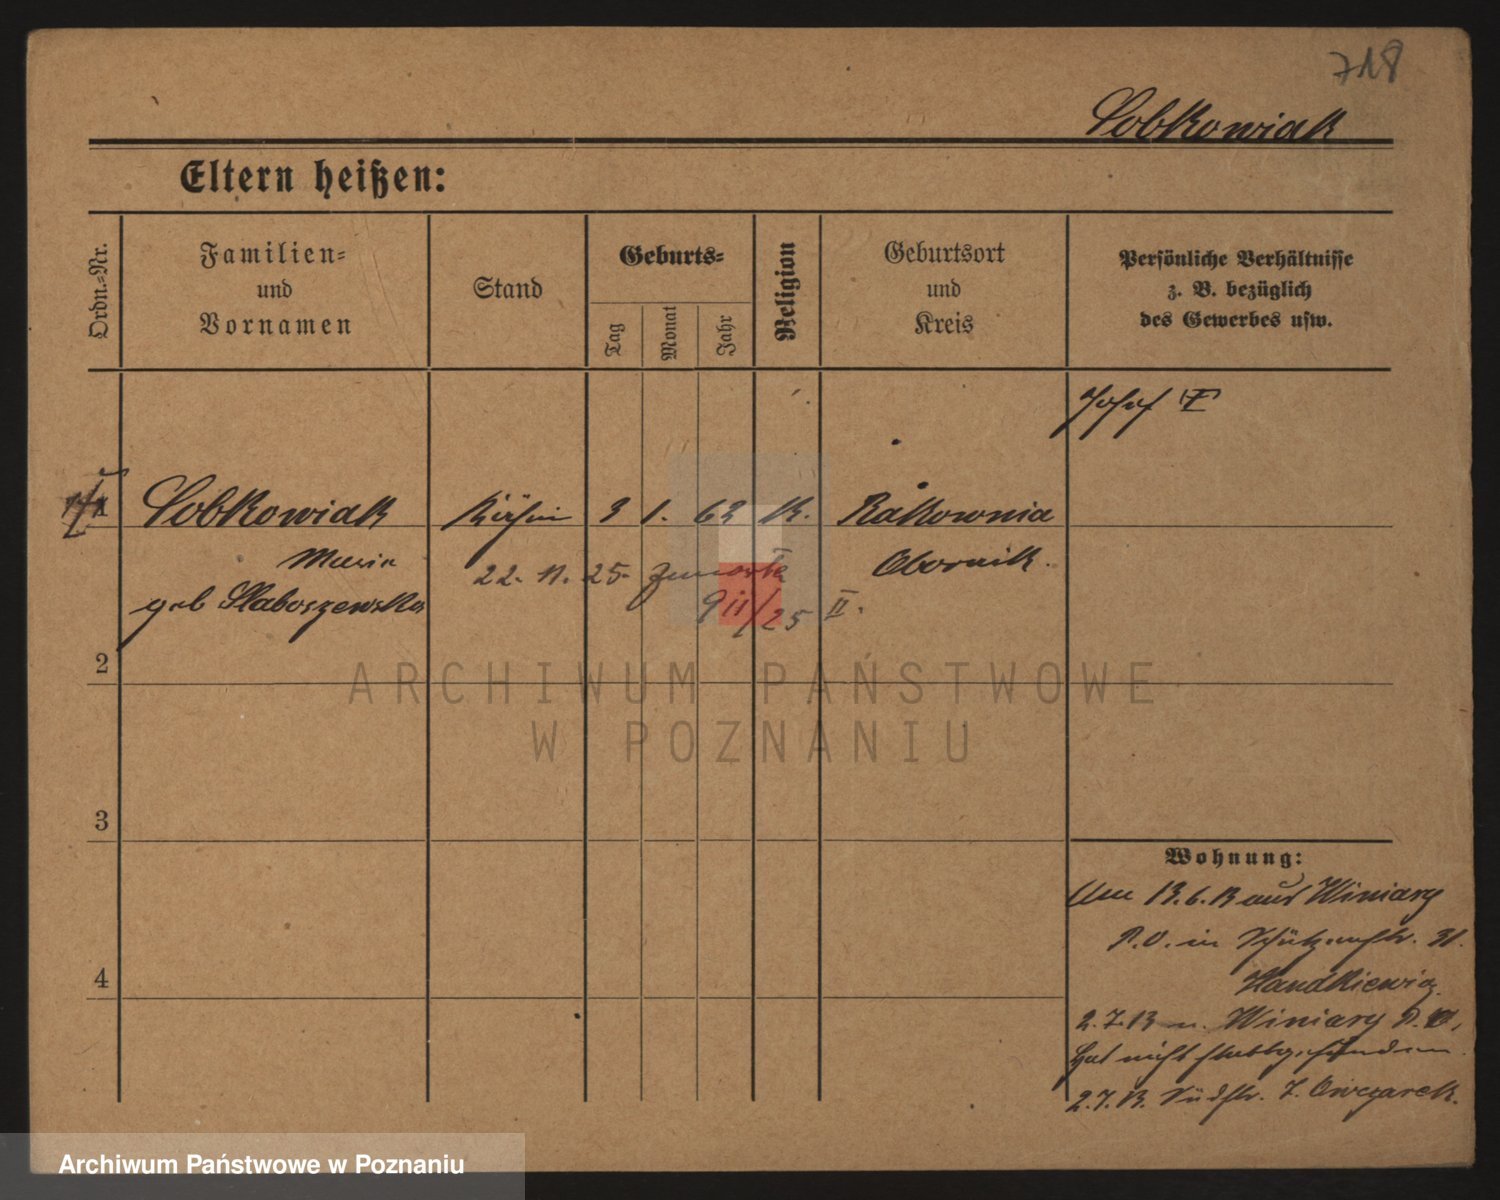 718
Sobkowiak
Eltern heißen:
Ordn.-Nr.
Familien-
und
Vornamen
Stand
Geburts-
Tag
Monat
Jahr
Religion
Geburtsort
und
Kreis
Persönliche Verhältnisse
z. B. bezüglich
des Gewerbes usw.
Josef
1 Sobkowiak 3 1. 63 K. Rakownia
Maria
Obornik.
geb Slaboszewska
22. 11. 25. zmarła
9 II/25 II.
2
3
4
Wohnung:
Am 13.6.13 aus Winiary
P.O. in Schützenstr. 31.
Handkiewicz.
2.7.13 n. Winiary P.O.
hat nicht stattgefunden.
2.7.13. Südstr. 7. Owczarek.
ARCHIWUM PAŃSTWOWE
W POZNANIU
Archiwum Państwowe w Poznaniu